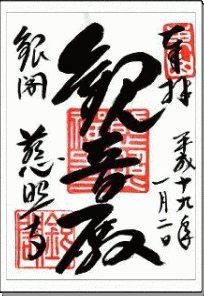 奉拝
平成十九年
一月二日
観音殿
銀閣
慈照寺